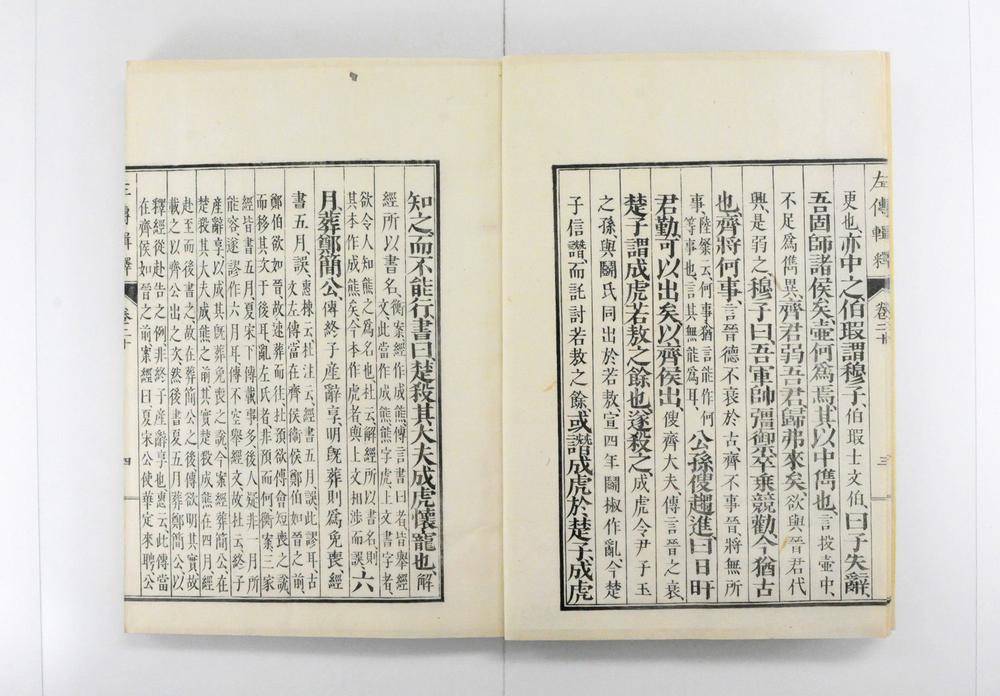 左傳輯釋
卷二十
三
更也、亦中之、伯瑕謂穆子、伯瑕士文伯、曰子失辭、
吾固師諸侯矣、壺何爲焉、其以中儁也、言投壺中、
不足爲儁異、齊君弱吾君、歸弗來矣、欲與晉君代
興、是弱之、穆子曰、吾軍帥彊御、卒乘競勸、今猶古
也、齊將何事、言晉德不衰於古、齊不事晉、將無所
事、陸粲云、何事、猶言能作何
等事也、言其無能爲耳、公孫傁趨進、曰日旰
君勤、可以出矣、以齊侯出、傁齊大夫、傳言晉之衰、
楚子謂成虎、若敖之餘也、遂殺之、成虎令尹子玉
之孫、與鬬氏同出於若敖、宣四年鬬椒作亂、今楚
子信譖、而託討若敖之餘、或譖成虎於楚子、成虎
知之、而不能行、書曰、楚殺其大夫成虎、懷寵也、解
經所以書名、衡案、經作成熊、傳言書曰者、皆舉經
文、此當作成熊、熊字虎、上文書字者、
欲令人知熊之爲名也、杜云、解經所以書名、則
其本作成熊矣、今本作虎者、與上文相涉而誤、六
月、葬鄭簡公、傳終子產辭享、明既葬則爲免喪、經
書五月誤、惠棟云、杜注云、經書五月誤、此謬耳、古
文左傳當在齊侯衞侯鄭伯如晉之前、
鄭伯欲如晉、故速葬而往、杜預欲傅會短喪之說、
而移其文于後耳、亂左氏者、非預而何、衡案、三家
經皆書五月、夏宋下傳載事多、後人疑非一月所
能容、遂謬作六月耳、傳不空舉經文、故杜云、終子
產辭享、以成其既葬免喪之說、今案經葬簡公、在
楚殺其大夫成熊之前、其實楚殺成熊在四月、經
赴至而後書之、故在葬簡公之後、傳欲明其實、故
載之以齊公出之次、然後書夏五月葬鄭簡公、以
釋經從赴告之例、非終子產辭享也、惠云、此傳當
在齊侯如晉之前、案經曰、夏宋公使華定來聘、公
左傳輯釋
卷二十
四